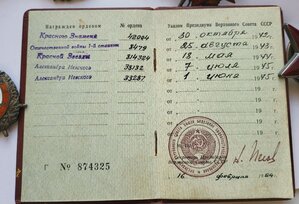 Награжден орденом
№ ордена
Красного Знамени 42094
Отечественной войны 1-й степени 3479
Красной Звезды 314324
Александра Невского 35132
Александра Невского 33287
Г № 874325
Указом Президиума Верховного Совета СССР
от 30 октября 1942.
от 25 августа 1943.
от 18 мая 1943.
от 7 июля 1945.
от 1 июня 1945.
16 февраля